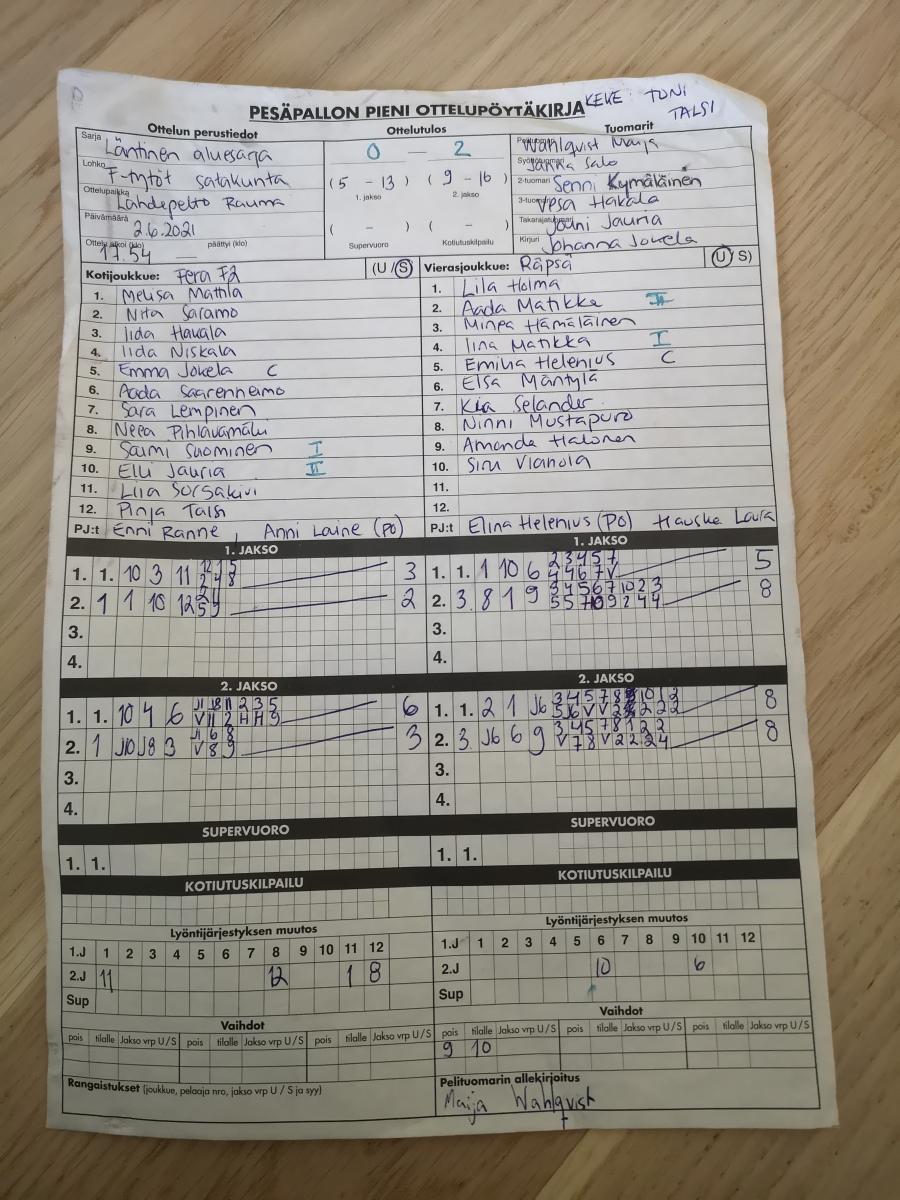 PESÄPALLON PIENI OTTELUPÖYTÄKIRJA KEKE: TONI TALSI
Ottelun perustiedot Ottelutulos Tuomarit
Sarja Läntinen aluesarja
Lohko F-tytöt satakunta
Ottelupaikka Lähdepelto Rauma
Päivämäärä 2.6.2021
Ottelu alkoi (klo) 17.54 päättyi (klo) —
0 — 2
(5 - 13) (9 - 16)
1. jakso 2. jakso
( - ) ( - )
Supervuoro Kotiutuskilpailu
Wahlqvist Maija
Janna Salo
2-tuomari Senni Kymäläinen
3-tuomari Vesa Hakala
Takarajatuomari Jouni Jauria
Kirjuri Johanna Jokela
Kotijoukkue: Fera F2 (U/S)
1. Melisa Mattila
2. Nita Saramo
3. Iida Haukala
4. Iida Niskala
5. Emma Jokela C
6. Aada Saarenheimo
7. Sara Lempinen
8. Neea Pihlavamäki
9. Saimi Suominen I
10. Elli Jauria II
11. Liia Sorsakivi
12. Pinja Talsi
PJ:t Enni Ranne, Anni Laine (PO)
Vierasjoukkue: Räpsä (U/S)
1. Lila Holma
2. Aada Matikka II
3. Minea Hämäläinen
4. Iina Matikka I
5. Emilia Helenius C
6. Elsa Mäntylä
7. Kia Selander
8. Ninni Mustapuro
9. Amanda Halonen
10. Siru
11.
12.
PJ:t Elina Helenius (PO) Laura
1. JAKSO
1. 1. 10 3 11 3
2. 1 1 10 12 2
3.
4.
1. JAKSO
1. 1. 1 10 6 2 3 4 5 7 5
4 4 6 7 V
2. 3 8 1 9 3 4 5 6 7 10 2 3 8
5 5 7 10 9 2 4 4
3.
4.
2. JAKSO
1. 1. 10 4 6 6
V 11 2 H H 9
2. 1 J10 J8 3 J1 6 8 3
V 8 9
3.
4.
2. JAKSO
1. 1. 2 1 J6 8
2. 3 J6 6 9 3 4 5 7 8 1 2 2 8
V 7 8 V 2 2 2 4
3.
4.
SUPERVUORO
1. 1.
SUPERVUORO
1. 1.
KOTIUTUSKILPAILU
KOTIUTUSKILPAILU
Lyöntijärjestyksen muutos
1.J 1 2 3 4 5 6 7 8 9 10 11 12
2.J 11 12 1 8
Sup
Lyöntijärjestyksen muutos
1.J 1 2 3 4 5 6 7 8 9 10 11 12
2.J 10 6
Sup
Vaihdot
pois tilalle Jakso vrp U/S pois tilalle Jakso vrp U/S pois tilalle Jakso vrp U/S
Vaihdot
pois tilalle Jakso vrp U/S pois tilalle Jakso vrp U/S pois tilalle Jakso vrp U/S
9 10
Rangaistukset (joukkue, pelaaja nro, jakso vrp U / S ja syy)
Pelituomarin allekirjoitus
Maija Wahlqvist